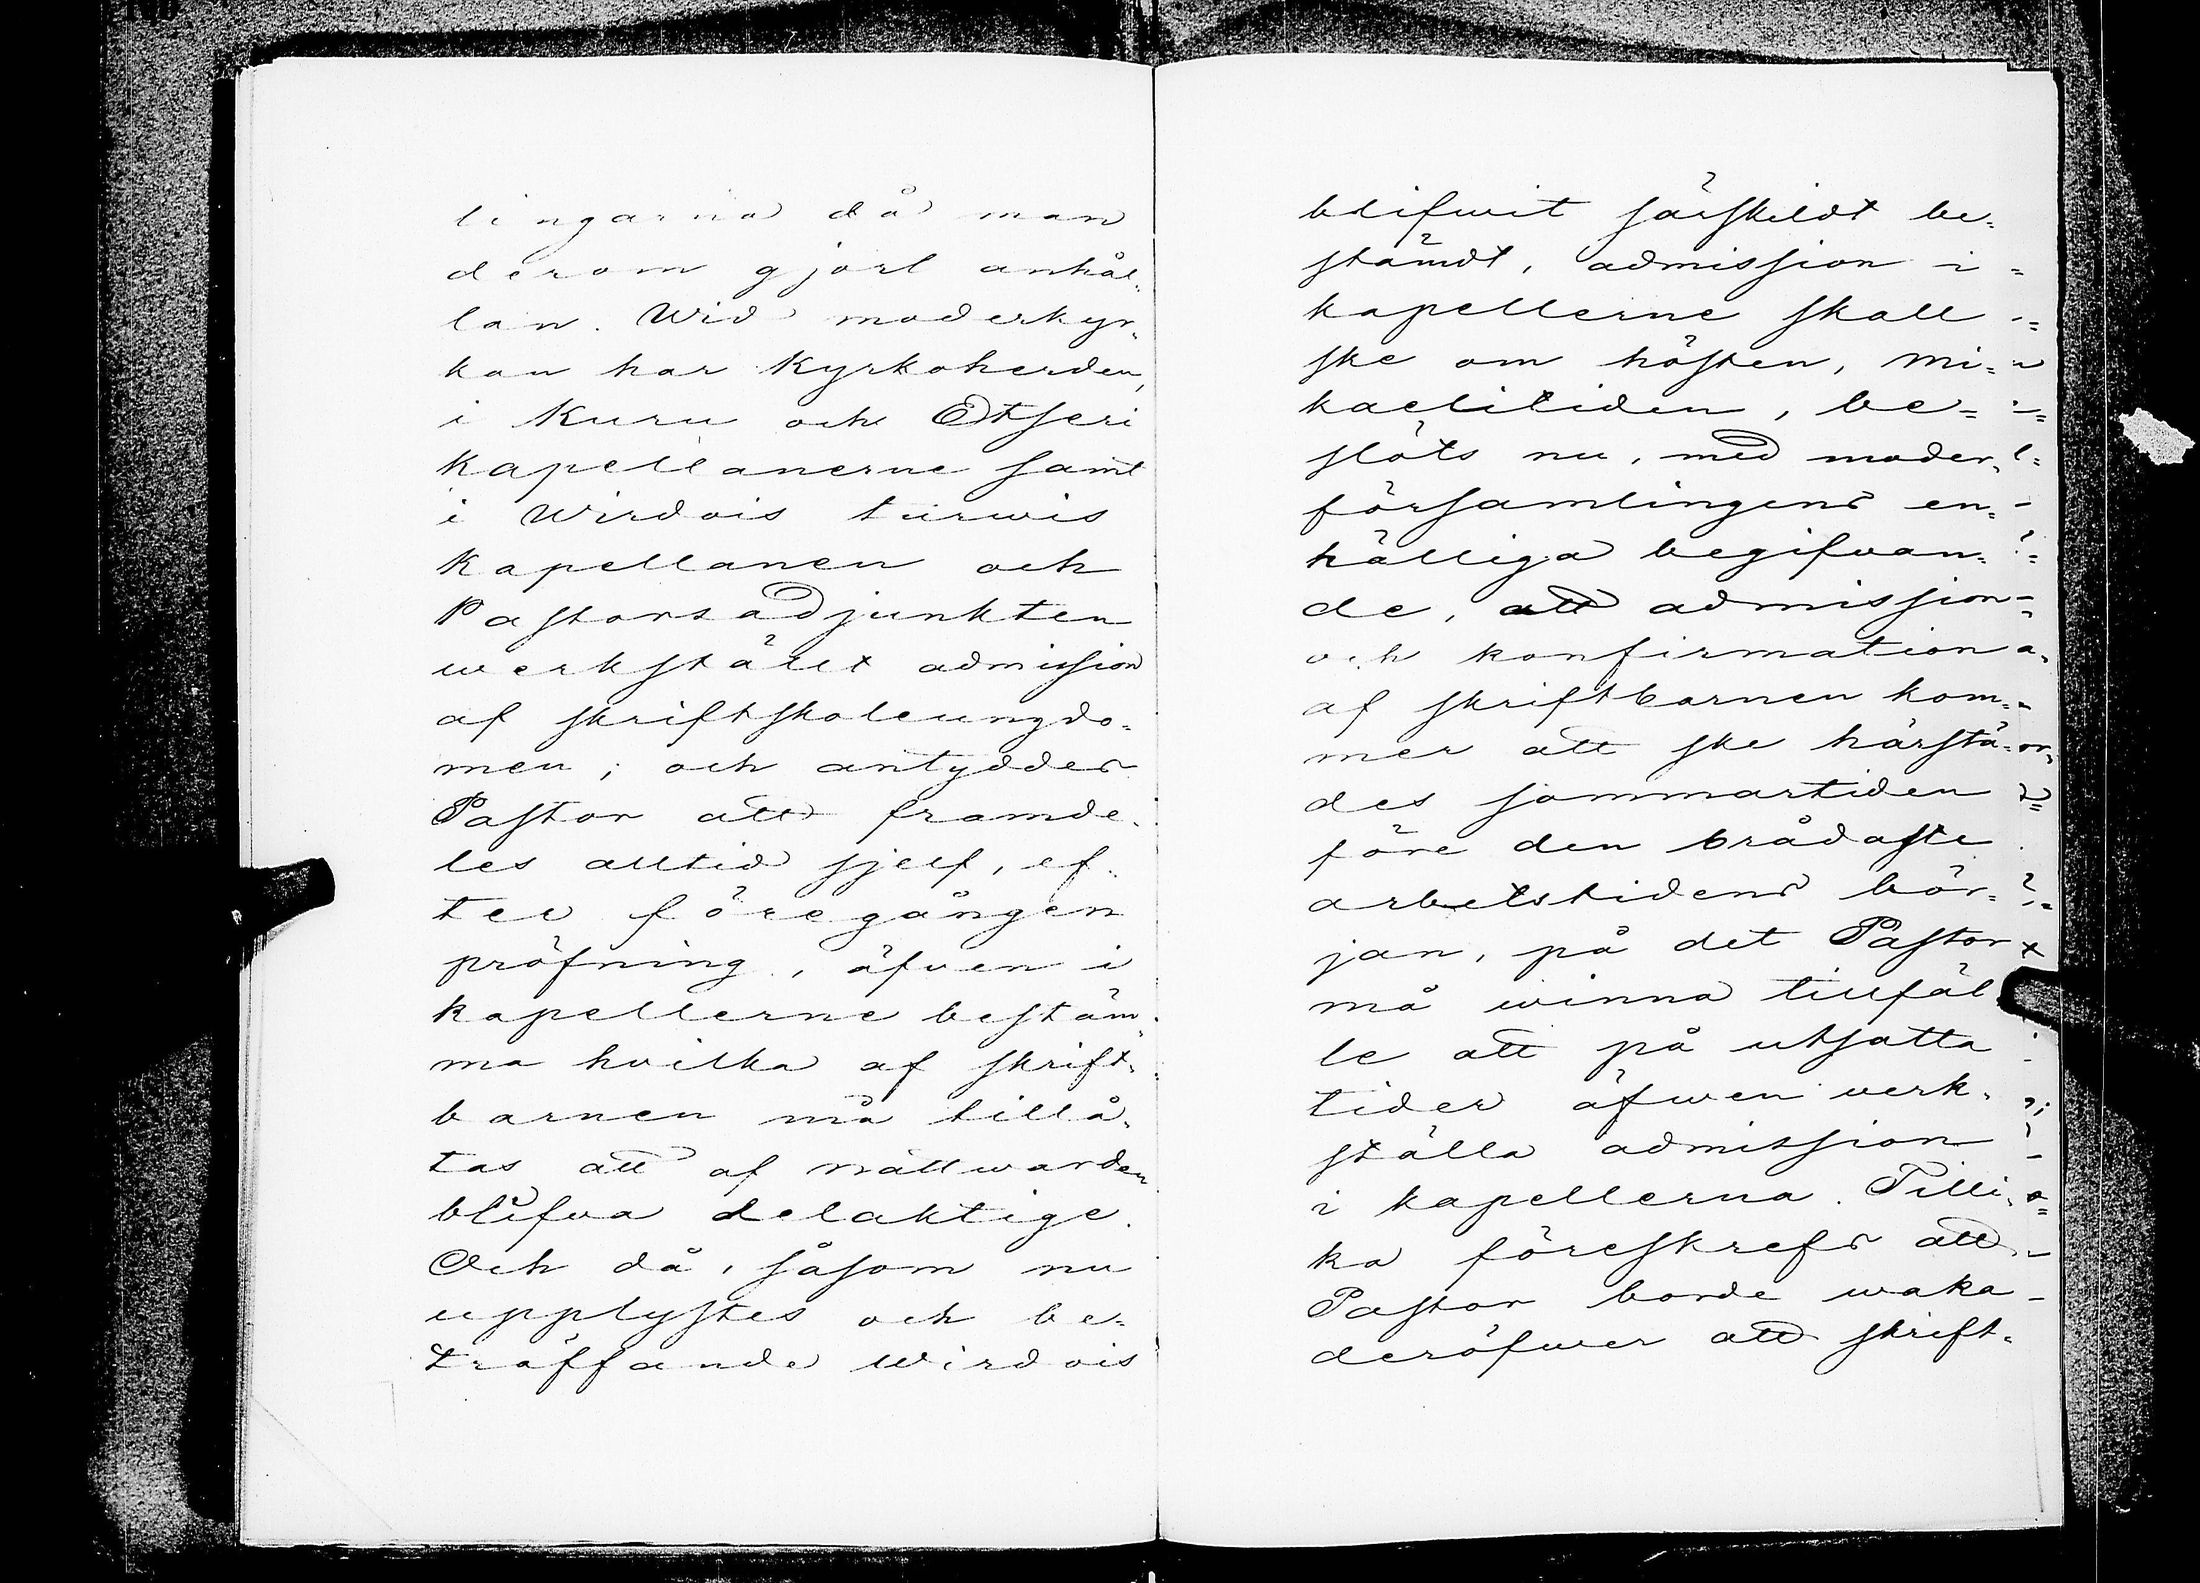 lingarna då man
derom gjort anhål-
lan. Wid moderkyr-
kan har Kyrkoherden,
i Kuru och Etseri
Kapellanerne samt
i Wirdois turwis
Kapellanen och
Pastorsadjunkten
werkstält admission
af skriftskoleungdo-
men; och antyddes
Pastor att framde-
les alltid sjelf, ef-
ter föregången
pröfning, äfven i
kapellerne bestäm-
ma hvilka af skrift-
barnen må tillå-
tas att af nattwarden
blifva delaktige.
Och då, såsom nu
upplystes och be-
träffande Wirdois
blifwit särskildt be-
stämdt, admission i
kapellerne skall
ske om hösten, Mi-
kaelitiden, be-
slöts nu, med moder-
församlingens en-
hälliga begifvan-
de, att admission
och konfirmation
af skriftbarnen kom-
mer att ske härstä-
des sommartiden
före den brådaste
arbetstidens bör-
jan, på det Pastor
må winna tillfäl-
le att på utsatta
tider äfwen verk-
ställa admission
i kapellerna. Tilli-
ka föreskrefs att
Pastor borde waka
deröfwer att skrift-